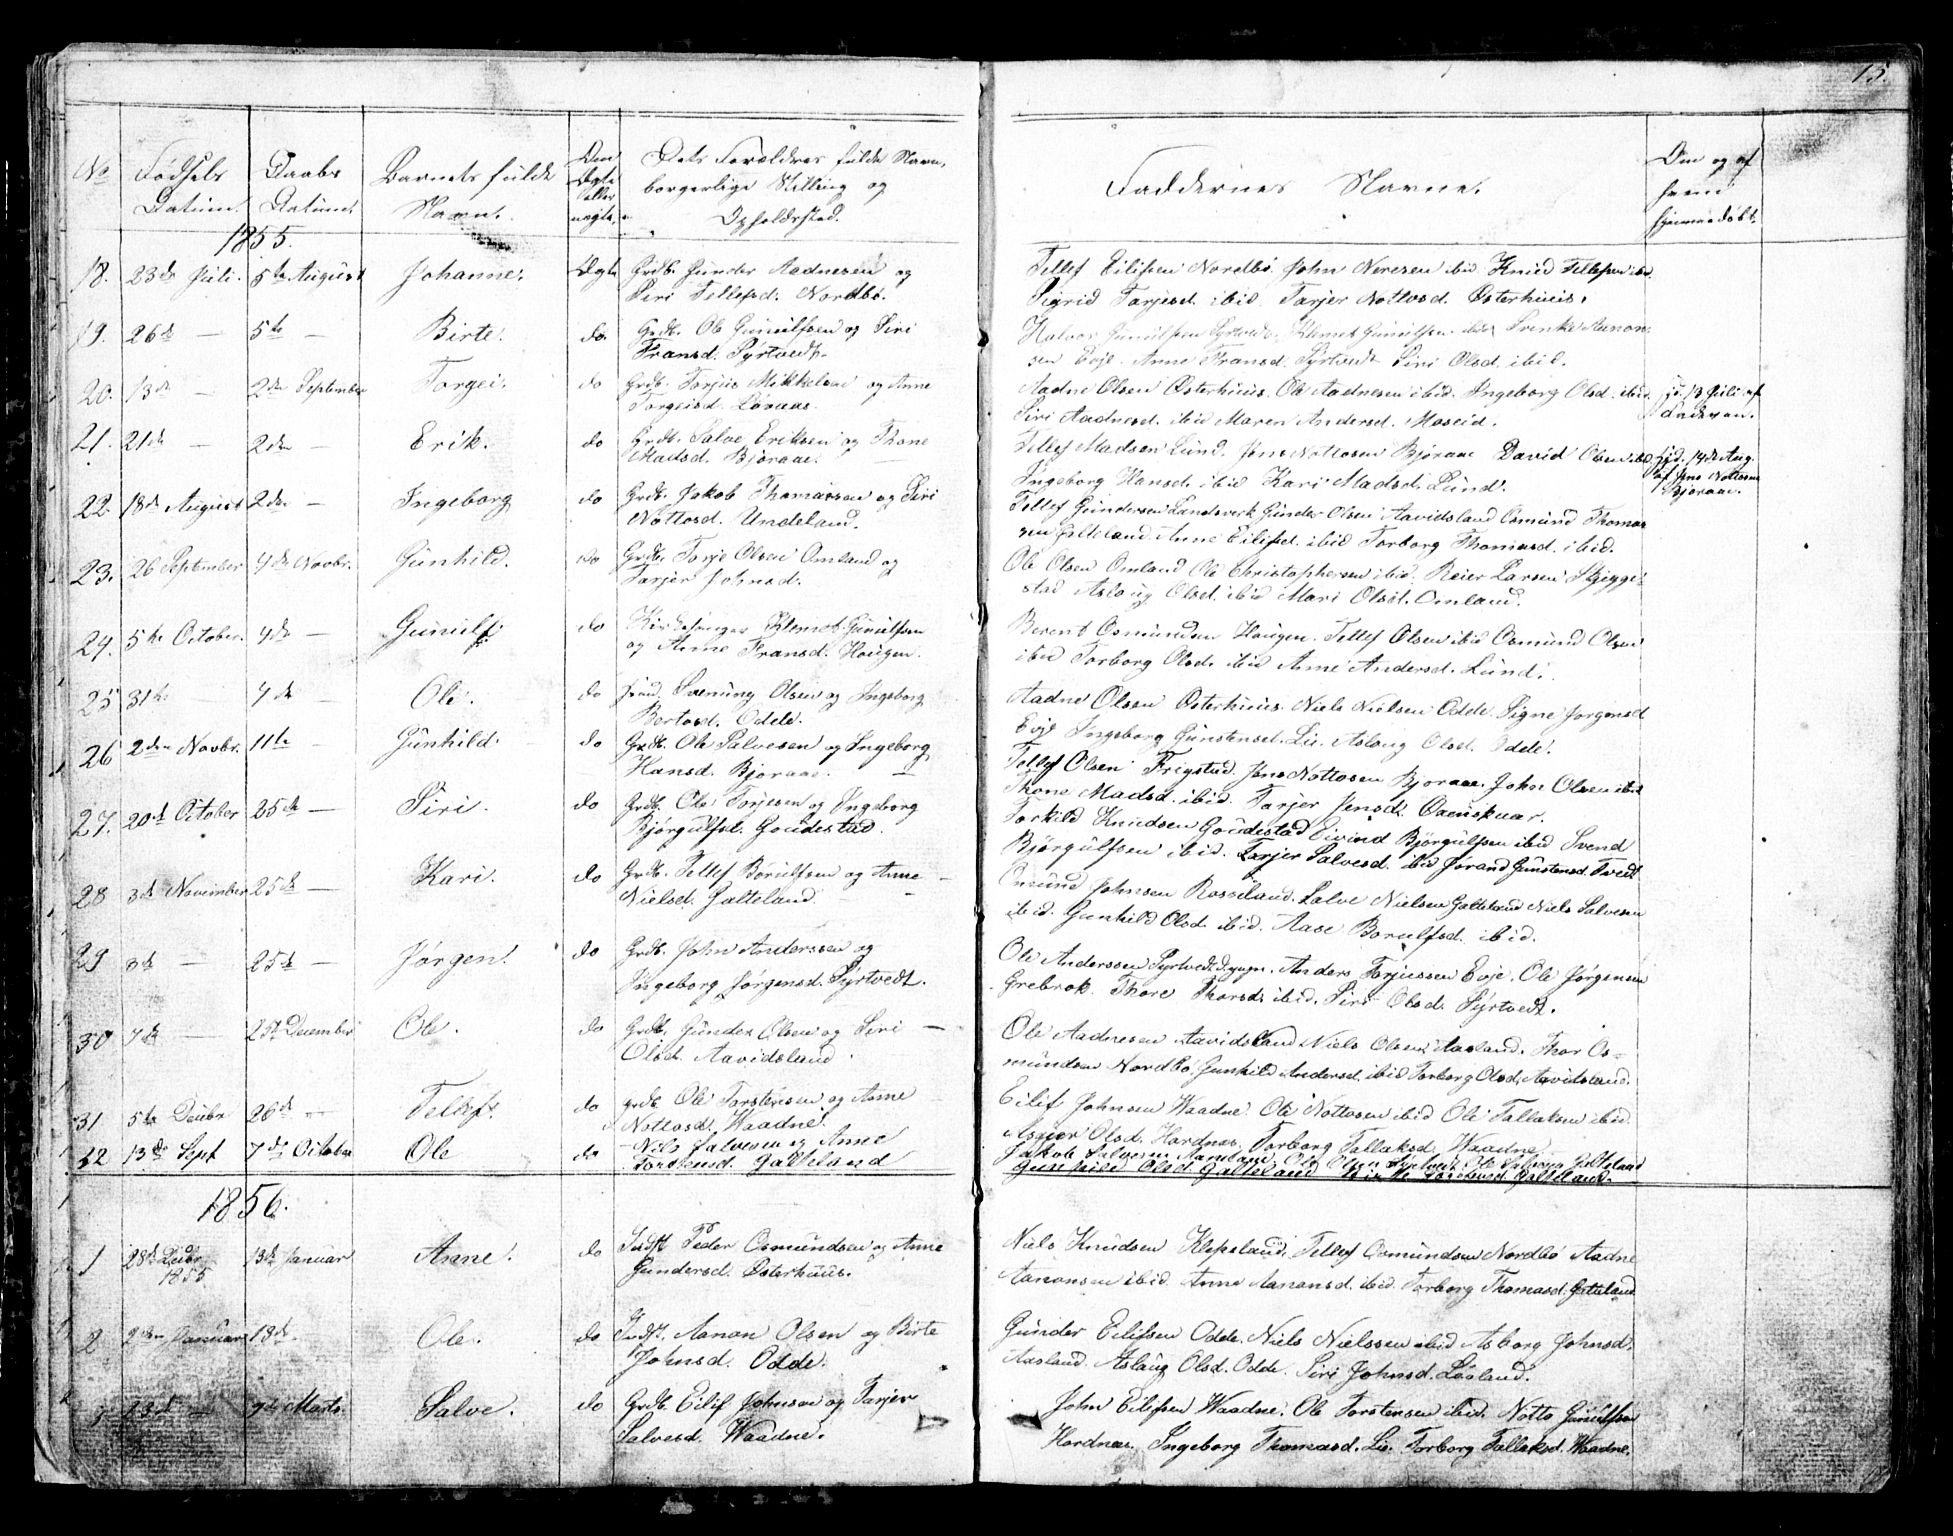 15.
No Fødsels Datum. Daabs Datum. Barnets fulde Navn. Om Ægte eller uegte. Dets Forældres fulde Navn, borgerlige Stilling og Opholdssted. Faddernes Navne. Om og af hvem hjemmedøbt.
1855.
18. 23de Juli. 5te August Johanne. Ægte Grdb. Gunder Aadnesen og
Siri Tellefsd. Nordbø.
Tellef Eilifsen Nordbø. John Neresen ibid. Knud Tellefsen ibid.
Sigrid Tarjesd. ibid. Tarjer Nottosd. Østerhuus.
19. 26de — 5te — Birte. do. Grdb. Ole Gunulfsen og Siri
Fransd. Syrtvedt.
Halvor Gunulfsen Syrtvedt. Klemet Gunulfsen ibid. Svenke Aanon-
sen Evje. Anne Fransd. Syrtvedt Siri Olsd. ibid.
20. 13de — 2den September Torgei. do Grdb. Torjus Mikkelsen og Anne
Torgeisd. Løvaas.
Aadne Olsen Østerhuus. Ole Aadnesen ibid. Ingeborg Olsd. ibid.
Siri Aadnesd. ibid Maren Andersd. Moseid.
hj. 13 Juli af
Faderen.
21. 21de — 2den — Erik. do Grdb. Salve Eriksen og Thone
Madsd. Bjoraae.
Tellef Madsen Lund. Jens Nottosen Bjoraae David Olsen ibid
Ingeborg Hansd. ibid Kari Madsd. Lund.
hjd. 14de Aug.
af Jens Nottosen
Bjoraae.
22. 18de August 2den — Ingeborg do Grdb. Jakob Thomassen og Siri
Nottosd. Undeland.
Tellef Gundersen Landsverk Gunder Olsen Aavidsland Osmund Thomas-
sen Galteland. Anne Eilifsd. ibid Torborg Thomasd. ibid.
23. 26 September 4de Novbr. Gunhild. do Grdb. Torje Olsen Omland og
Tarjer Johnsd.
Ole Olsen Omland Ole Christophersen ibid. Reier Larsen Skjeggi-
stad Aslaug Olsd. ibid Mari Olsd. Omland.
24. 5te October. 4de — Gunulf. do Kirkesanger Klemet Gunulfsen
og Anne Fransd. Hougen.
Berent Osmundsen Hougen. Tellef Olsen ibid Osmund Olsen
ibid Torborg Olsd. ibid Anne Andersd. Lund.
25 31te 4de — Ole. do Svenung Olsen og Ingeborg
Bertosd. Odde.
Aadne Olsen Østerhuus. Niels Nielsen Odde. Signe Jørgensd.
Evje Ingeborg Gunstensd. Lie. Aslaug Olsd. Odde.
26 2den Novbr. 11te — Gunhild. do Grdb. Ole Salvesen og Ingeborg
Hansd. Bjoraae. —
Tellef Olsen Frigstad. Jens Nottosen Bjoraae. John Olsen ibid
Thone Madsd. ibid. Tarjer Jensd.
27. 20de October 25de — Siri. do Grdb. Ole Torjesen og Ingeborg
Bjørgulfsd. Goudestad.
Torkild Knudsen Goudestad Eivind Bjørgulfsen ibid Svend
Bjørgulfsen ibid. Tarjer Salvesd. ibid Jorand Gunstensd. Tvedt
28 3de November 25de — Kari. do Grdb. Tellef Borulfsen og Anne —
Nielsd. Galteland. —
Osmund Johnsen Rosseland. Salve Nielsen Galteland Niels Salvesen
ibid. Gunhild Olsd. ibid. Aase Borulfsd. ibid.
29 3de — 25de — Jørgen. do Grdb. John Anderssen og
Ingeborg Jørgensd. Syrtvedt.
Ole Anderssen Syrtvedt. Anders Torjussen Evje. Ole Jørgensen
Grebrok. Thore Thorsd. ibid. Siri Olsd. Syrtvedt.
30 7de — December Ole. do Grdb. Gunder Olsen og Siri —
Olsd. Aavidsland.
Ole Aadnesen Aavidsland Niels Olsen Aasland. Thor Os-
mundsen Nordbø. Gunhild Andersd. ibid Torborg Olsd. Aavidsland.
31 5te Decbr 26de — Tellef. do grdb. Ole Torstensen og Anne
Nottosd. Waadne.
Eilif Johnsen Waadne. Ole Nottosen ibid Ole Tallaksen ibid.
Asgjer Olsd. Hordnæs. Torborg Tallaksd. Waadne
32 13de Sept 7de October Ole do Nils Salvesen og Anne
Torstensd. Galteland
Jakob Salvesen Ole Olsen Syrtvedt Ole Galteland
Gunhild Olsd. Galteland Torstensd. Galteland.
1856.
1 28de Decbr 1855 13de Januar Anne. do Indst Peder Osmundsen og Anne
Gundersd. Østerhuus.
Niels Knudsen Klepeland. Tellef Osmundsen Nordbø Aadne
Aanonsen ibid. Anne Aanonsd. ibid. Torborg Thomasd. Galteland
2 2den Januar 13de Ole. do Indst. Aanon Olsen og Birte
Johnsd. Odde.
Gunder Eilifsen Odde. Niels Nielssen ibid Asborg Johnsd.
Aasland. Aslaug Olsd. Odde. Siri Johnsd. Løsland.
3. 23de — Marts. Salve. do Grdb. Eilif Johnsen og Tarjer
Salvesd. Waadne.
John Eilifsen Waadne. Ole Torstensen ibid. Notto Gunulfsen
Hordnæs. Ingeborg Thomasd. Lie. Torborg Tallaksd. Waadne.